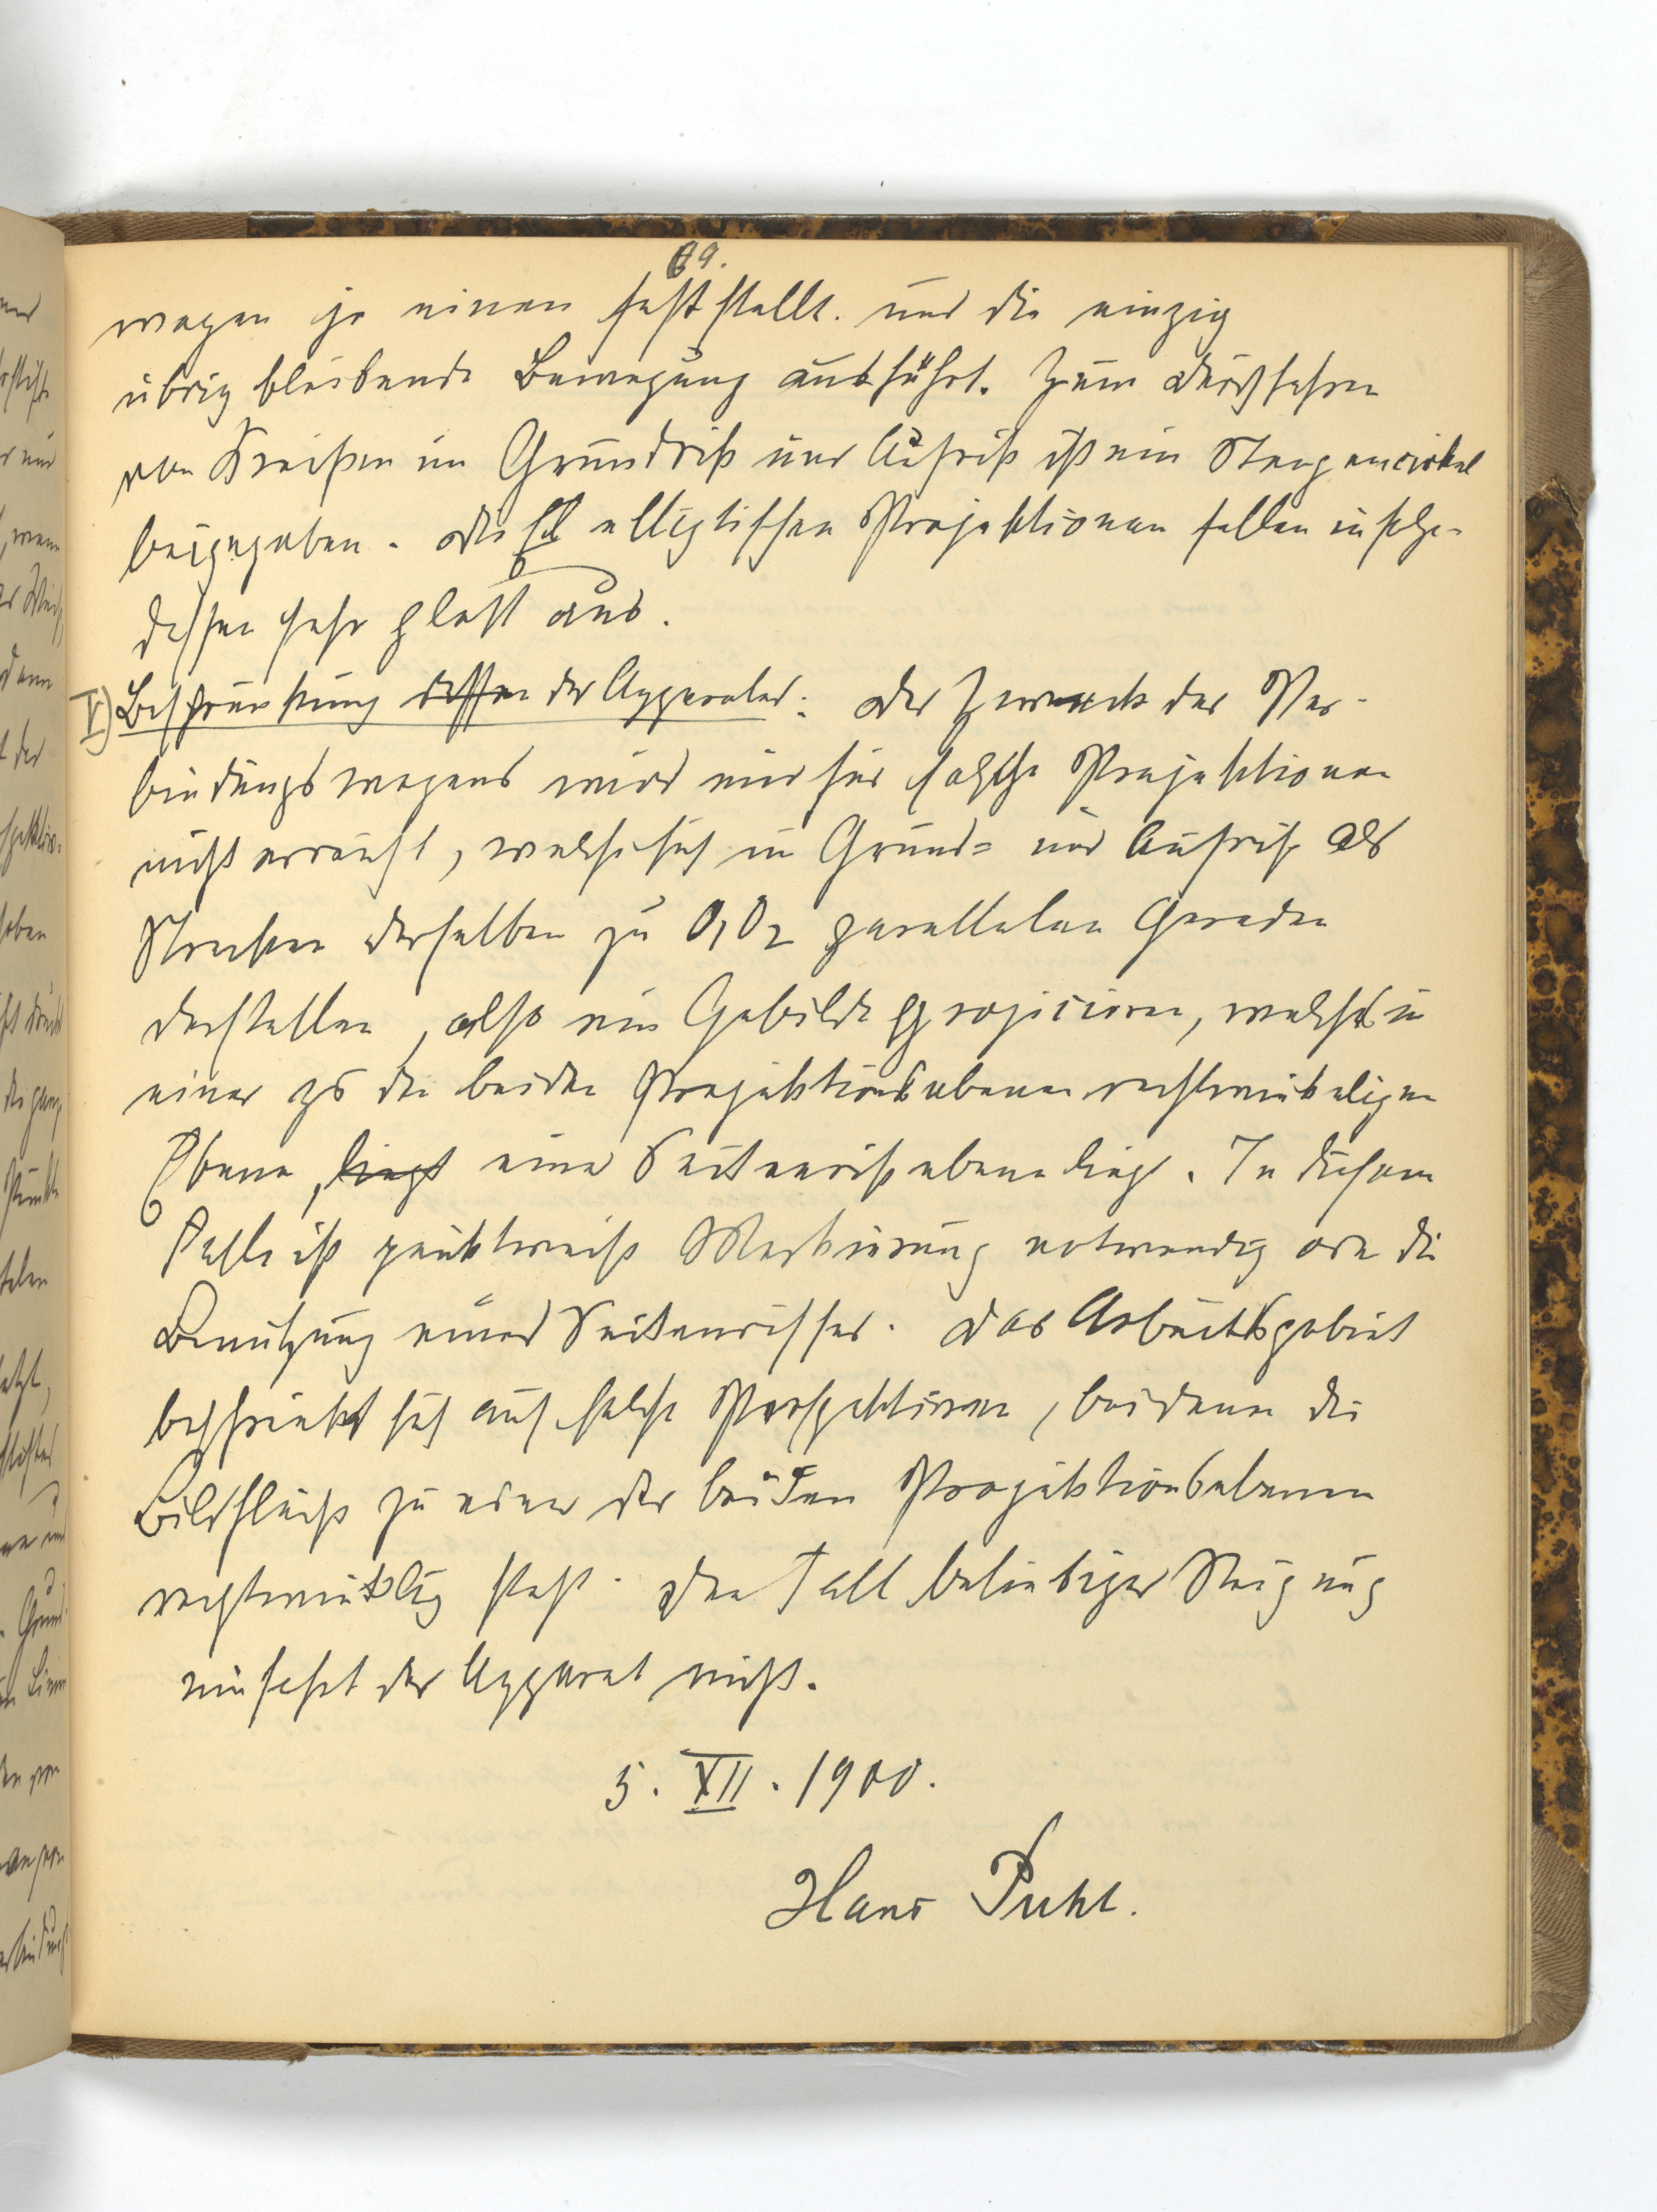 69.
wagen je einen feststellt. und die einzig
übrig bleibende Bewegung ausführt. Zum Durchfahren
von Kreisen im Grundriß und Aufriß ist ein Stangencirkel
beigegeben. Die elliptischen Projektionen fallen infolge-
dessen sehr glatt aus.
V) Beschränkung dessen der Apparates: Der Zweck des Ver-
bindungswagens wird nur für solche Projektionen
nicht erreicht, welche sich in Grund= und Aufriß als
Strecken derselben zu O₁O₂ parallelen Geraden
darstellen, also ein Gebilde projicieren, welches in
einer zu den beiden Projektionsebenen rechtwinkeligen
Ebene, liegt einer Seitenrißebene liegt. In diesem
Falle ist punktweise Markierung notwendig oder die
Benutzung eines Seitenrisses. Das Arbeitsgebiet
beschränkt sich auf solche Perspektiven, bei denen die
Bildfläche zu einer der beiden Projektionsebenen
rechtwinklig steht. Den Fall beliebiger Neigung
umfaßt der Apparat nicht.
5. XII. 1900.
Hans Puhl.